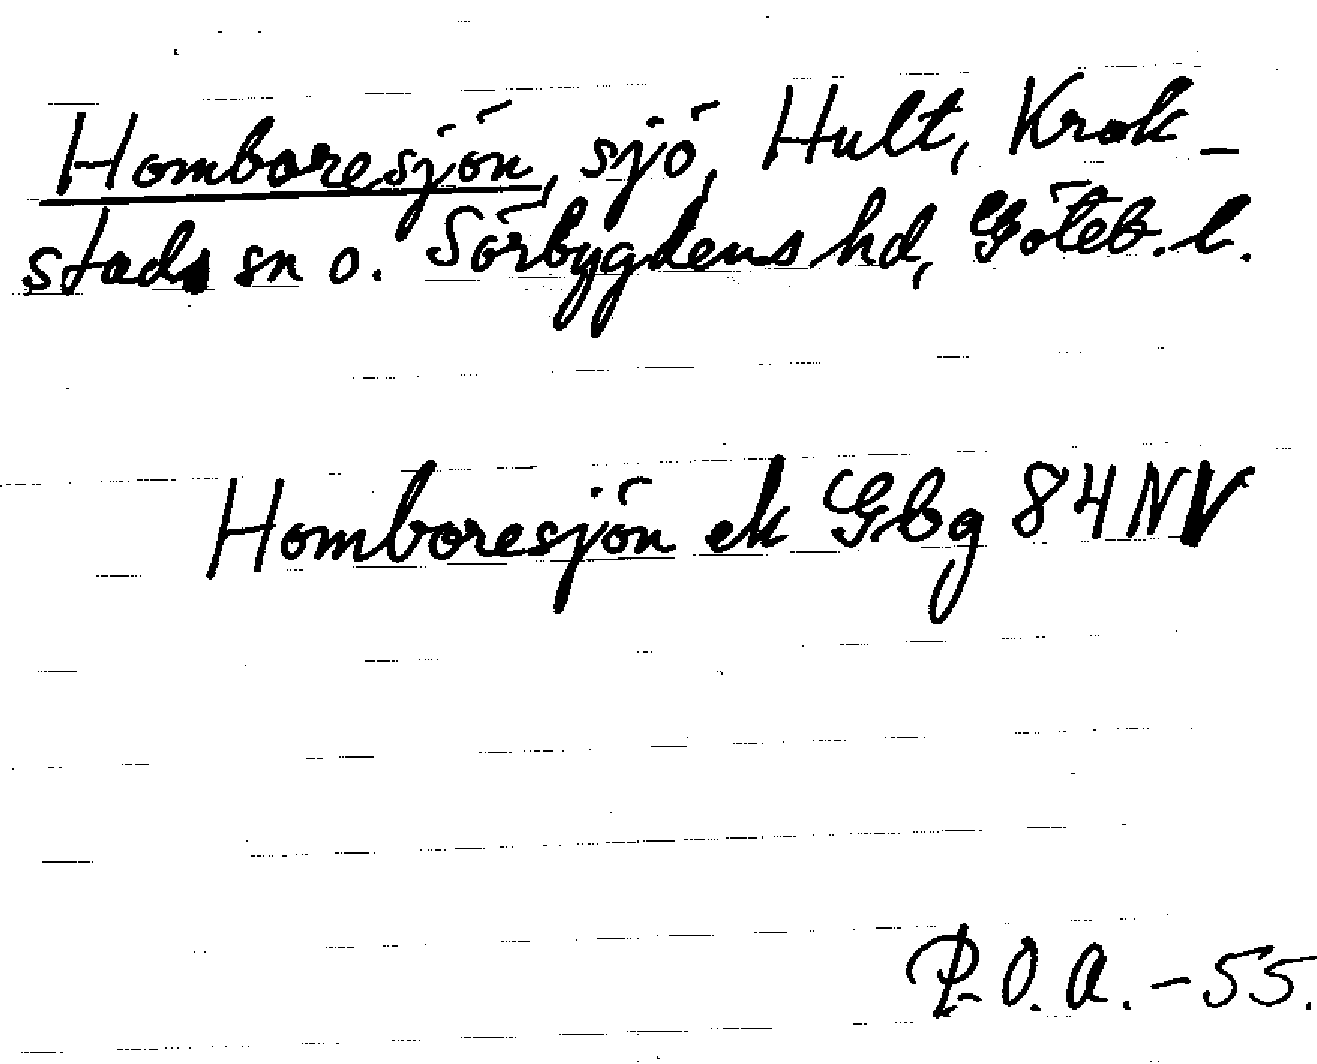 Homboresjön, sjö, Hult, Krok-
stads sn o. Sörbygdens hd, Göteb. l.
Homboresjön ek Gbg 84 NV
P.O.A. -55.